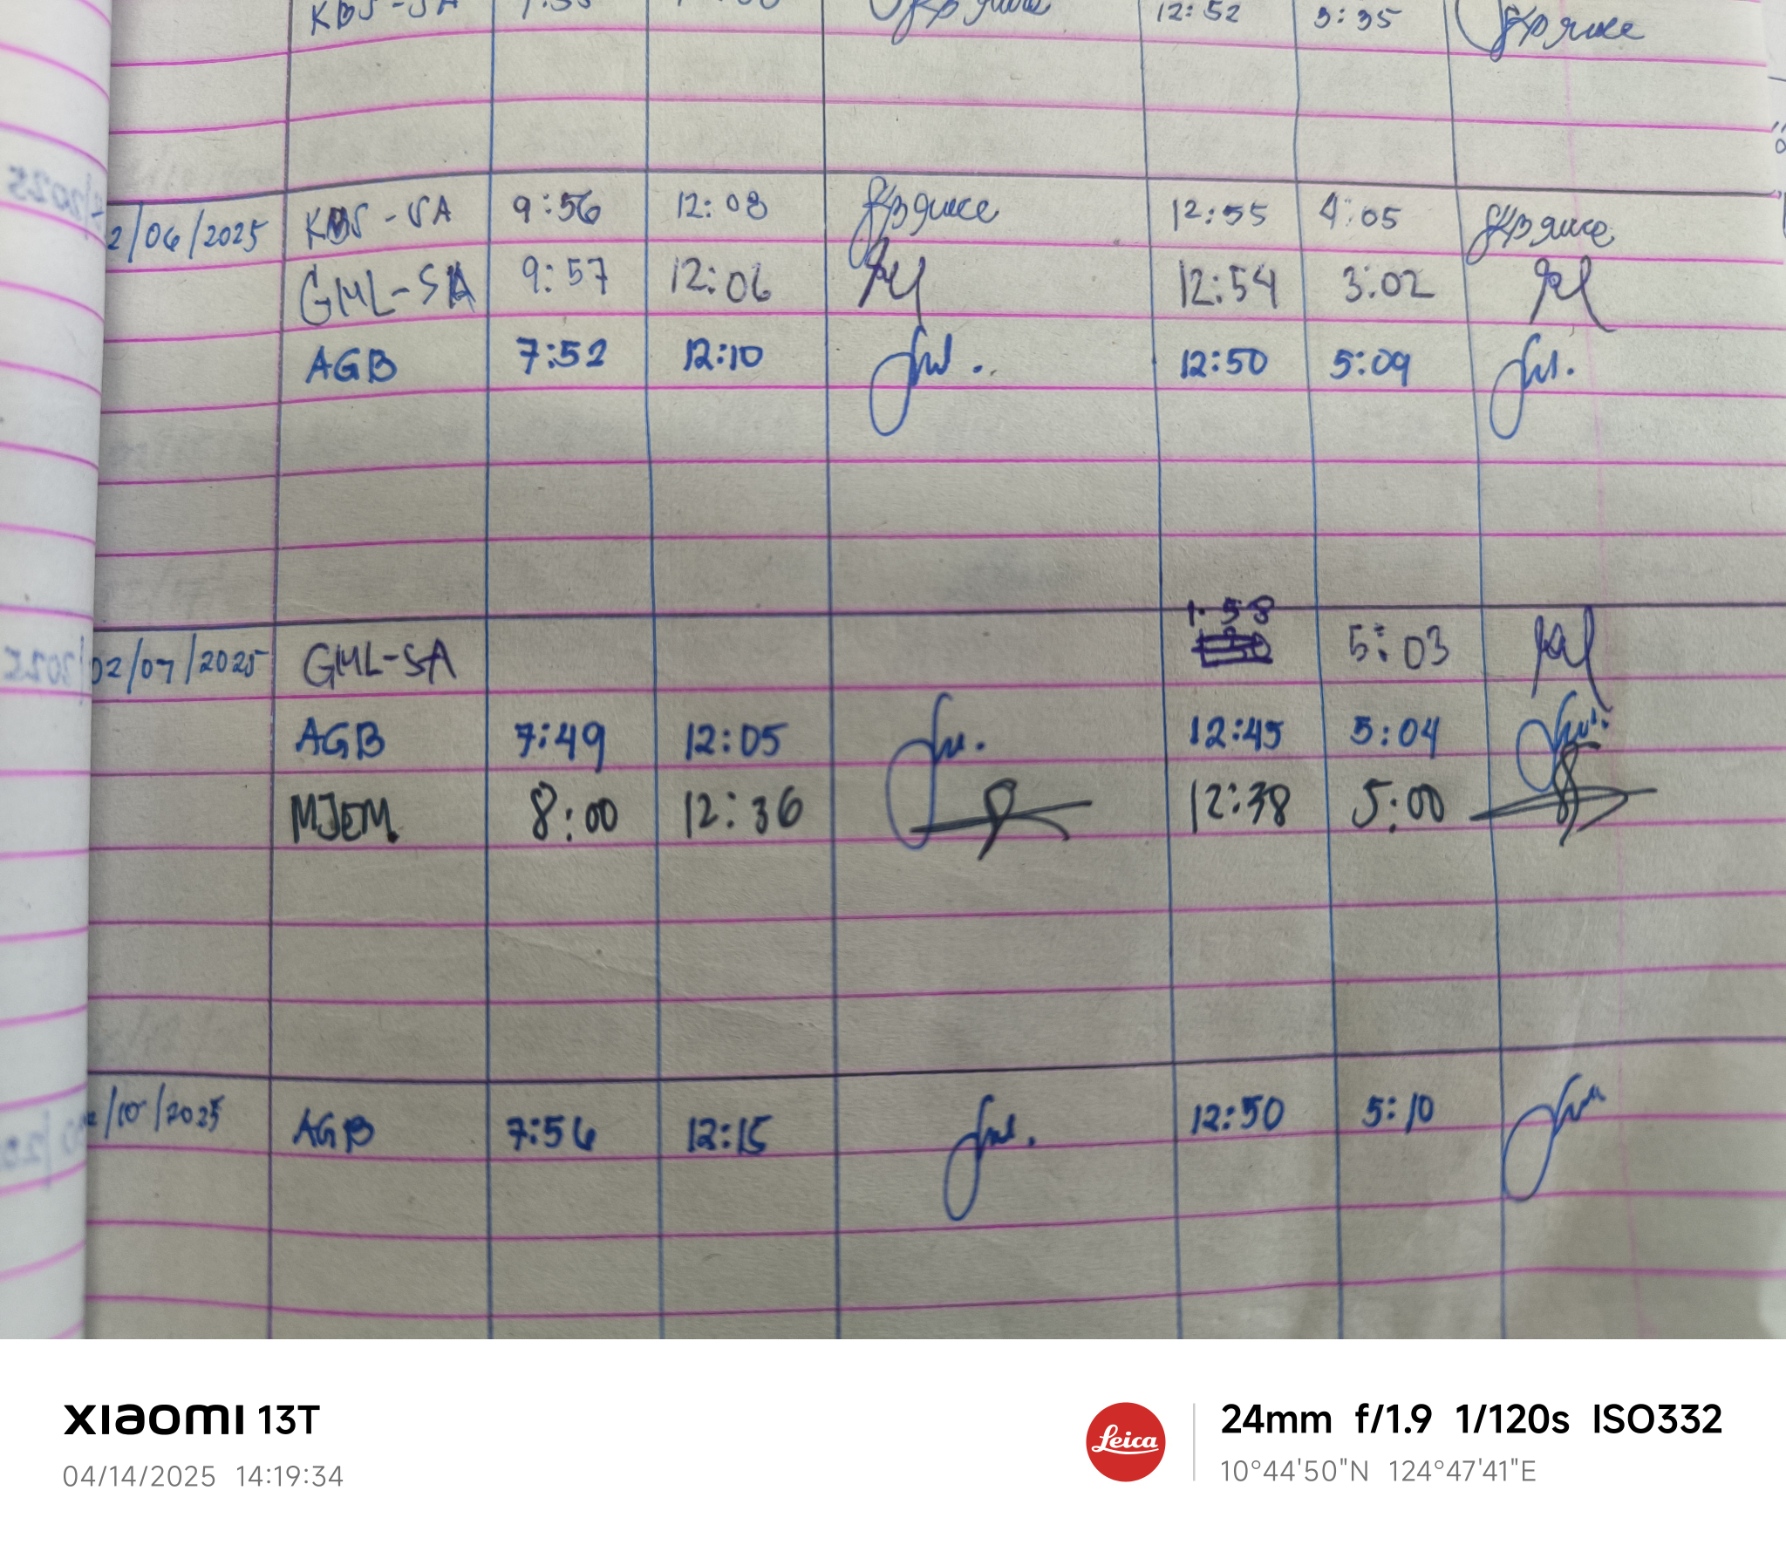 KBS-SA 12:52 3:35
2/06/2025 KBS-SA 9:56 12:03 12:55 4:05
GML-SA 9:57 12:06 12:54 3:02
AGB 7:52 12:10 12:50 5:09
1:58
02/07/2025 GML-SA 5:03
AGB 7:49 12:05 12:45 5:04
MJEM 8:00 12:36 12:38 5:00
/10/2025 AGB 7:56 12:15 12:50 5:10
XIAOMI 13T
04/14/2025 14:19:34
Leica
24mm f/1.9 1/120s ISO332
10°44'50"N 124°47'41"E